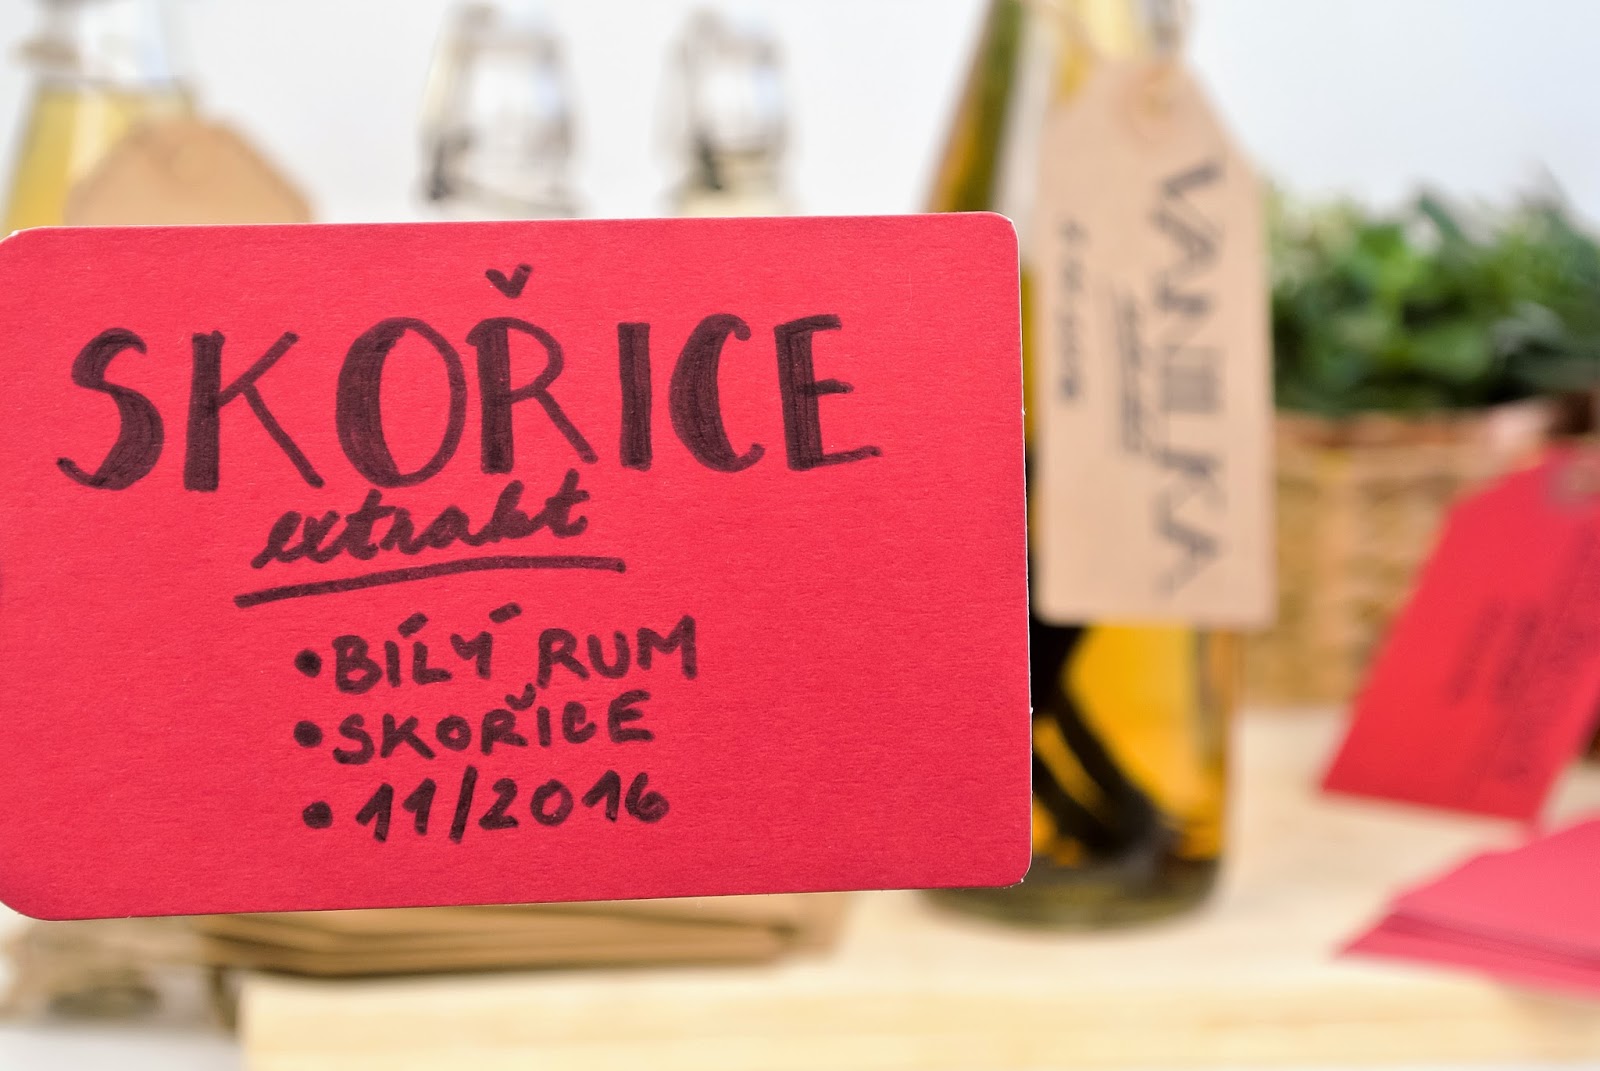 SKOŘICE
extrakt
• BÍLÝ RUM
• SKOŘICE
• 11/2016
VANILKA